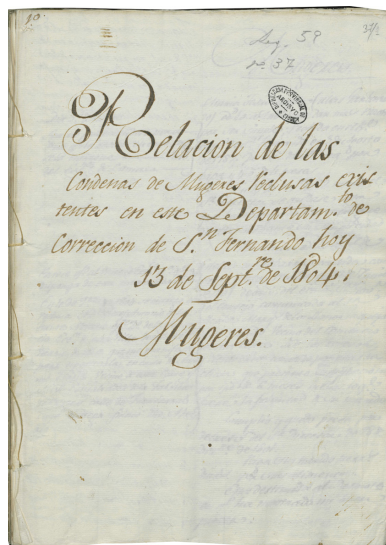 10.
Leg. 58
nº. 37
37/1
Relacion de las
Condenas de Mugeres Reclusas exis
tentes en este Departam.to de
Correccion de S.n Fernando hoy
13 de Sept.re de 1804.
Mugeres.